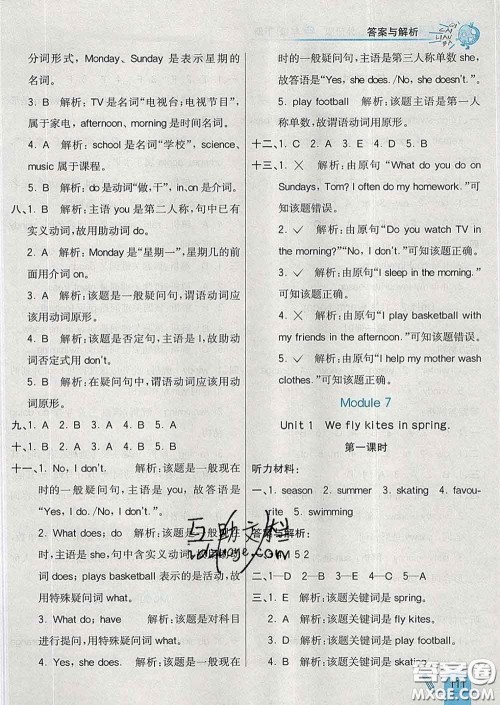 答案与解析
分词形式，Monday、Sunday 是表示星期的
名词。
3. B 解析：TV 是名词“电视台；电视节目”，
属于家电，afternoon、morning 是时间名词。
4. A 解析：school 是名词“学校”，science、
music 属于课程。
5. B 解析：do 是动词“做，干”，in、on 是介词。
八、1. B 解析：主语 you 是第二人称，句中已有
实义动词，故用助动词 do。
2. A 解析：Monday 是“星期一”，星期几的前
面用介词 on。
3. A 解析：该题是一般疑问句，谓语动词应
该用动词原形。
4. B 解析：该题是否定句，主语是 I，故助动
词否定式用 don't。
5. B 解析：在疑问句中谓语动词应该用动
词原形。
九、1. A 2. A 3. B 4. B 5. A
十、1. A 2. B 3. B 4. A 5. A
十一、1. No, I don't. 解析：该题是一般现在
时的一般疑问句，主语是 you，故答语是
“Yes, I do. /No, I don't.”
2. What does; do 解析：该题是一般现在
时，主语是 she，句中含实义动词，对动词
do; does; plays basketball 表示的是活动，故
用特殊疑问词 what。
3. What do; have 解析：该题是对科目
进行提问，用特殊疑问词 what。
4. Yes, she does. 解析：该题是一般现在
时的一般疑问句，主语是第三人称单数 she，
故答语是“Yes, she does. /No, she doesn't.”
5. play football 解析：该题主语是第一人
称单数，故谓语动词用原形。
十二、1. C 2. A 3. D 4. E 5. B
十三、1. × 解析：由原句“What do you do on
Sundays, Tom? I often do my homework.”可
知该题错误。
2. ✓ 解析：由原句“Do you watch TV in
the morning?”“No, I don't.”可知该题正确。
3. ✓ 解析：由原句“I sleep in the morning.”
可知该题正确。
4. × 解析：由原句“I play basketball with
my friends in the afternoon.”可知该题错误。
5. ✓ 解析：由原句“I help my mother wash
clothes.”可知该题正确。
Module 7
Unit 1 We fly kites in spring.
第一课时
听力材料：
一、1. season 2. summer 3. skating 4. favou-
rite 5. swimming
答案与解析：
一、4 1 5 2
二、1. D 2. C 3. B 4. E 5. A
三、1. B 解析：该题关键词是 spring.
2. A 解析：该题关键词是 fly kites.
3. A 解析：该题关键词是 play football.
4. B 解析：该题关键词是 skating.
互助文档
答案圈
111